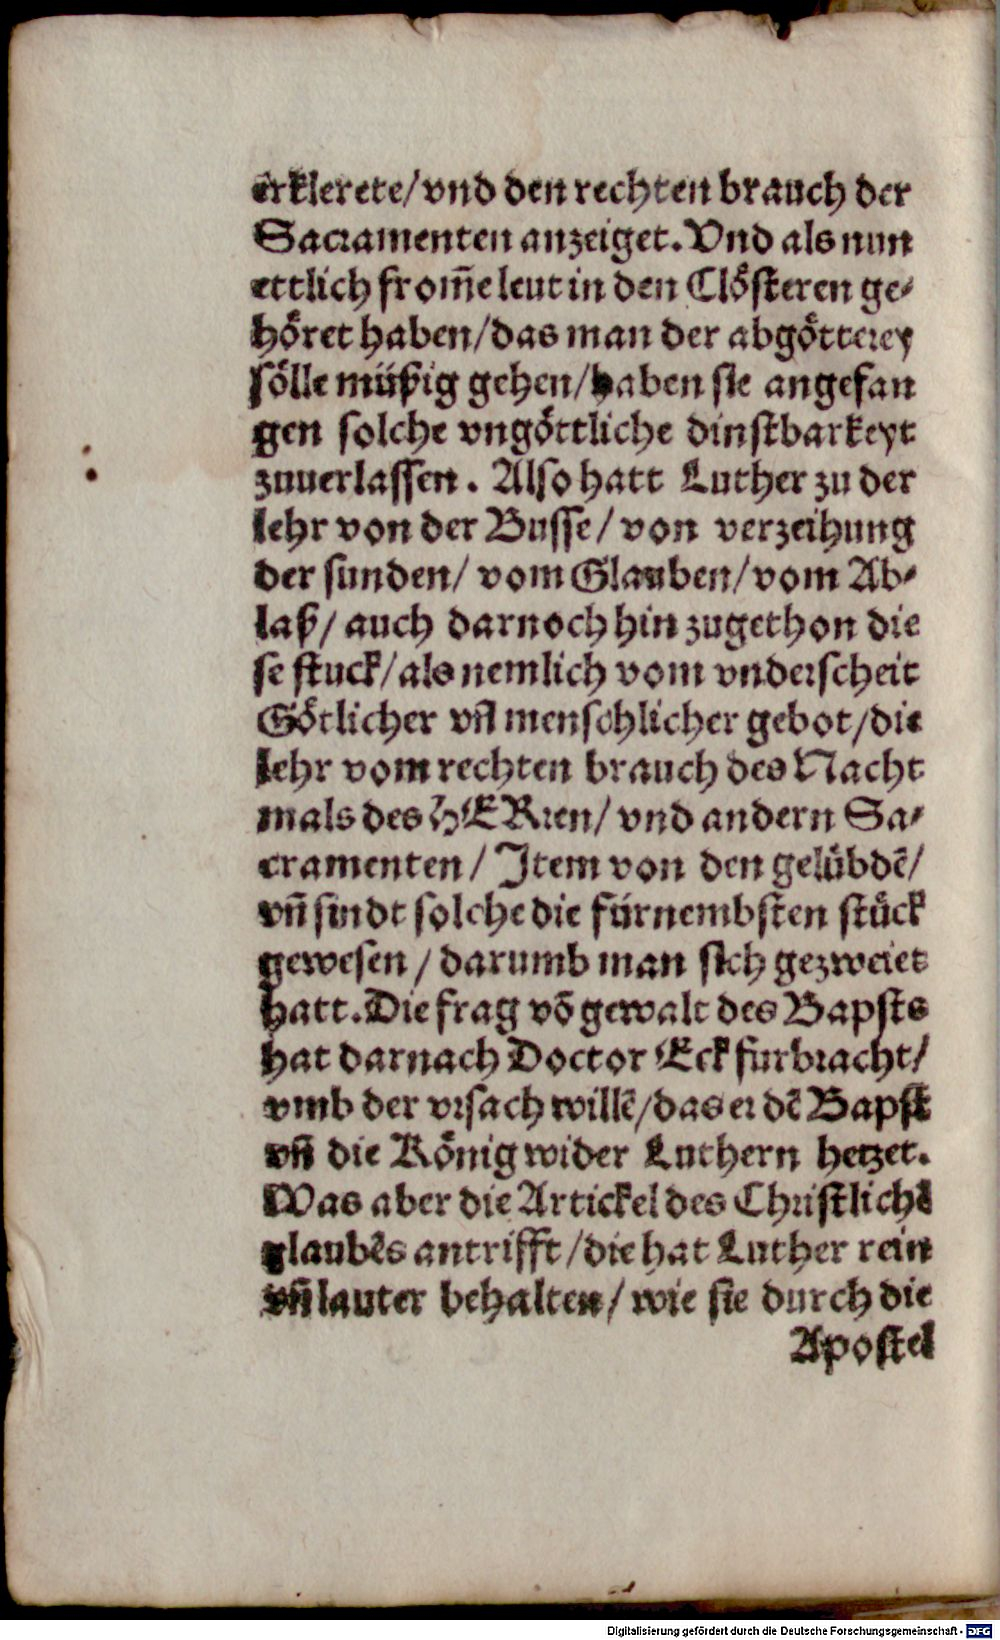 erklerete/ vnd den rechten brauch der
Sacramenten anzeiget. Vnd als nun
ettlich from̄e leut in den Clöſteren ge⸗
höret haben/ das man der abgötterey
ſölle müßig gehen/ haben ſie angefan
gen ſolche vngöttliche dinſtbarkeyt
zuuerlaſſen. Alſo hatt Luther zu der
lehr von der Buſſe/ von verzeihung
der ſunden/ vom Glauben/ vom Ab⸗
laß/ auch darnoch hin zugethon die
ſe ſtuck/ als nemlich vom vnderſcheit
Götlicher vn̄ menſchlicher gebot/ die
lehr vom rechten brauch des Nacht
mals des HERren/ vnd andern Sa⸗
cramenten/ Item von den gelübdē/
vn̄ ſindt ſolche die fürnembſten ſtück
geweſen/ darumb man ſich gezweiet
hatt. Die frag vō gewalt des Bapſts
hat darnach Doctor Eck furbracht/
vmb der vrſach willē/ das er dē Bapſt
vn̄ die König wider Luthern hetzet.
Was aber die Artickel des Chriſtlichē
glaubēs antrifft/ die hat Luther rein
vn̄ lauter behalten/ wie ſie durch die
Apoſtel
Digitalisierung gefördert durch die Deutsche Forschungsgemeinschaft - DFG